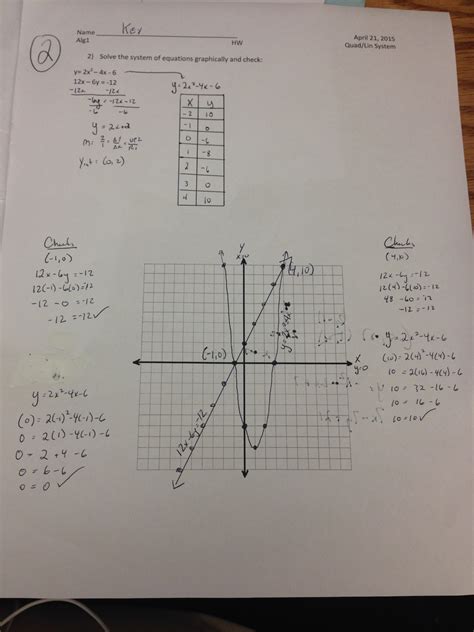 2
Name Key
Alg1
HW
April 21, 2015
Quad/Lin System
2) Solve the system of equations graphically and check:
y= 2x² – 4x – 6
12x – 6y = -12
-12x -12x
-6y = -12x-12
-6 -6
y = 2x+2
m: 2/1 = Δy/Δx =
y int: (0, 2)
y= 2x²-4x-6
X Y
-2 10
-1 0
0 -6
1 -8
2 -6
3 0
4 10
Check
(-1,0)
12x-6y=-12
12(-1)-6(0)=-12
-12-0=-12
-12=-12✓
y=2x²-4x-6
(0)=2(-1)²-4(-1)-6
0=2(1)-4(-1)-6
0=2+4-6
0=6-6
0=0 ✓
Y
x=0
(4,10)
(-1,0)
X
y=0
12x-6y=-12
Check
(4,10)
12x-6y=-12
12(4)-6(10)=-12
48-60=-12
-12=-12
y=2x²-4x-6
(10)=2(4)²-4(4)-6
10=2(16)-4(4)-6
10=32-16-6
10=16-6
10=10✓